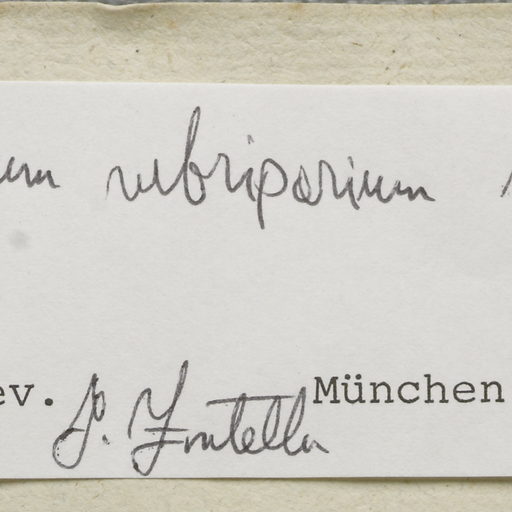 um rubriparium
ev. J. Fontella München